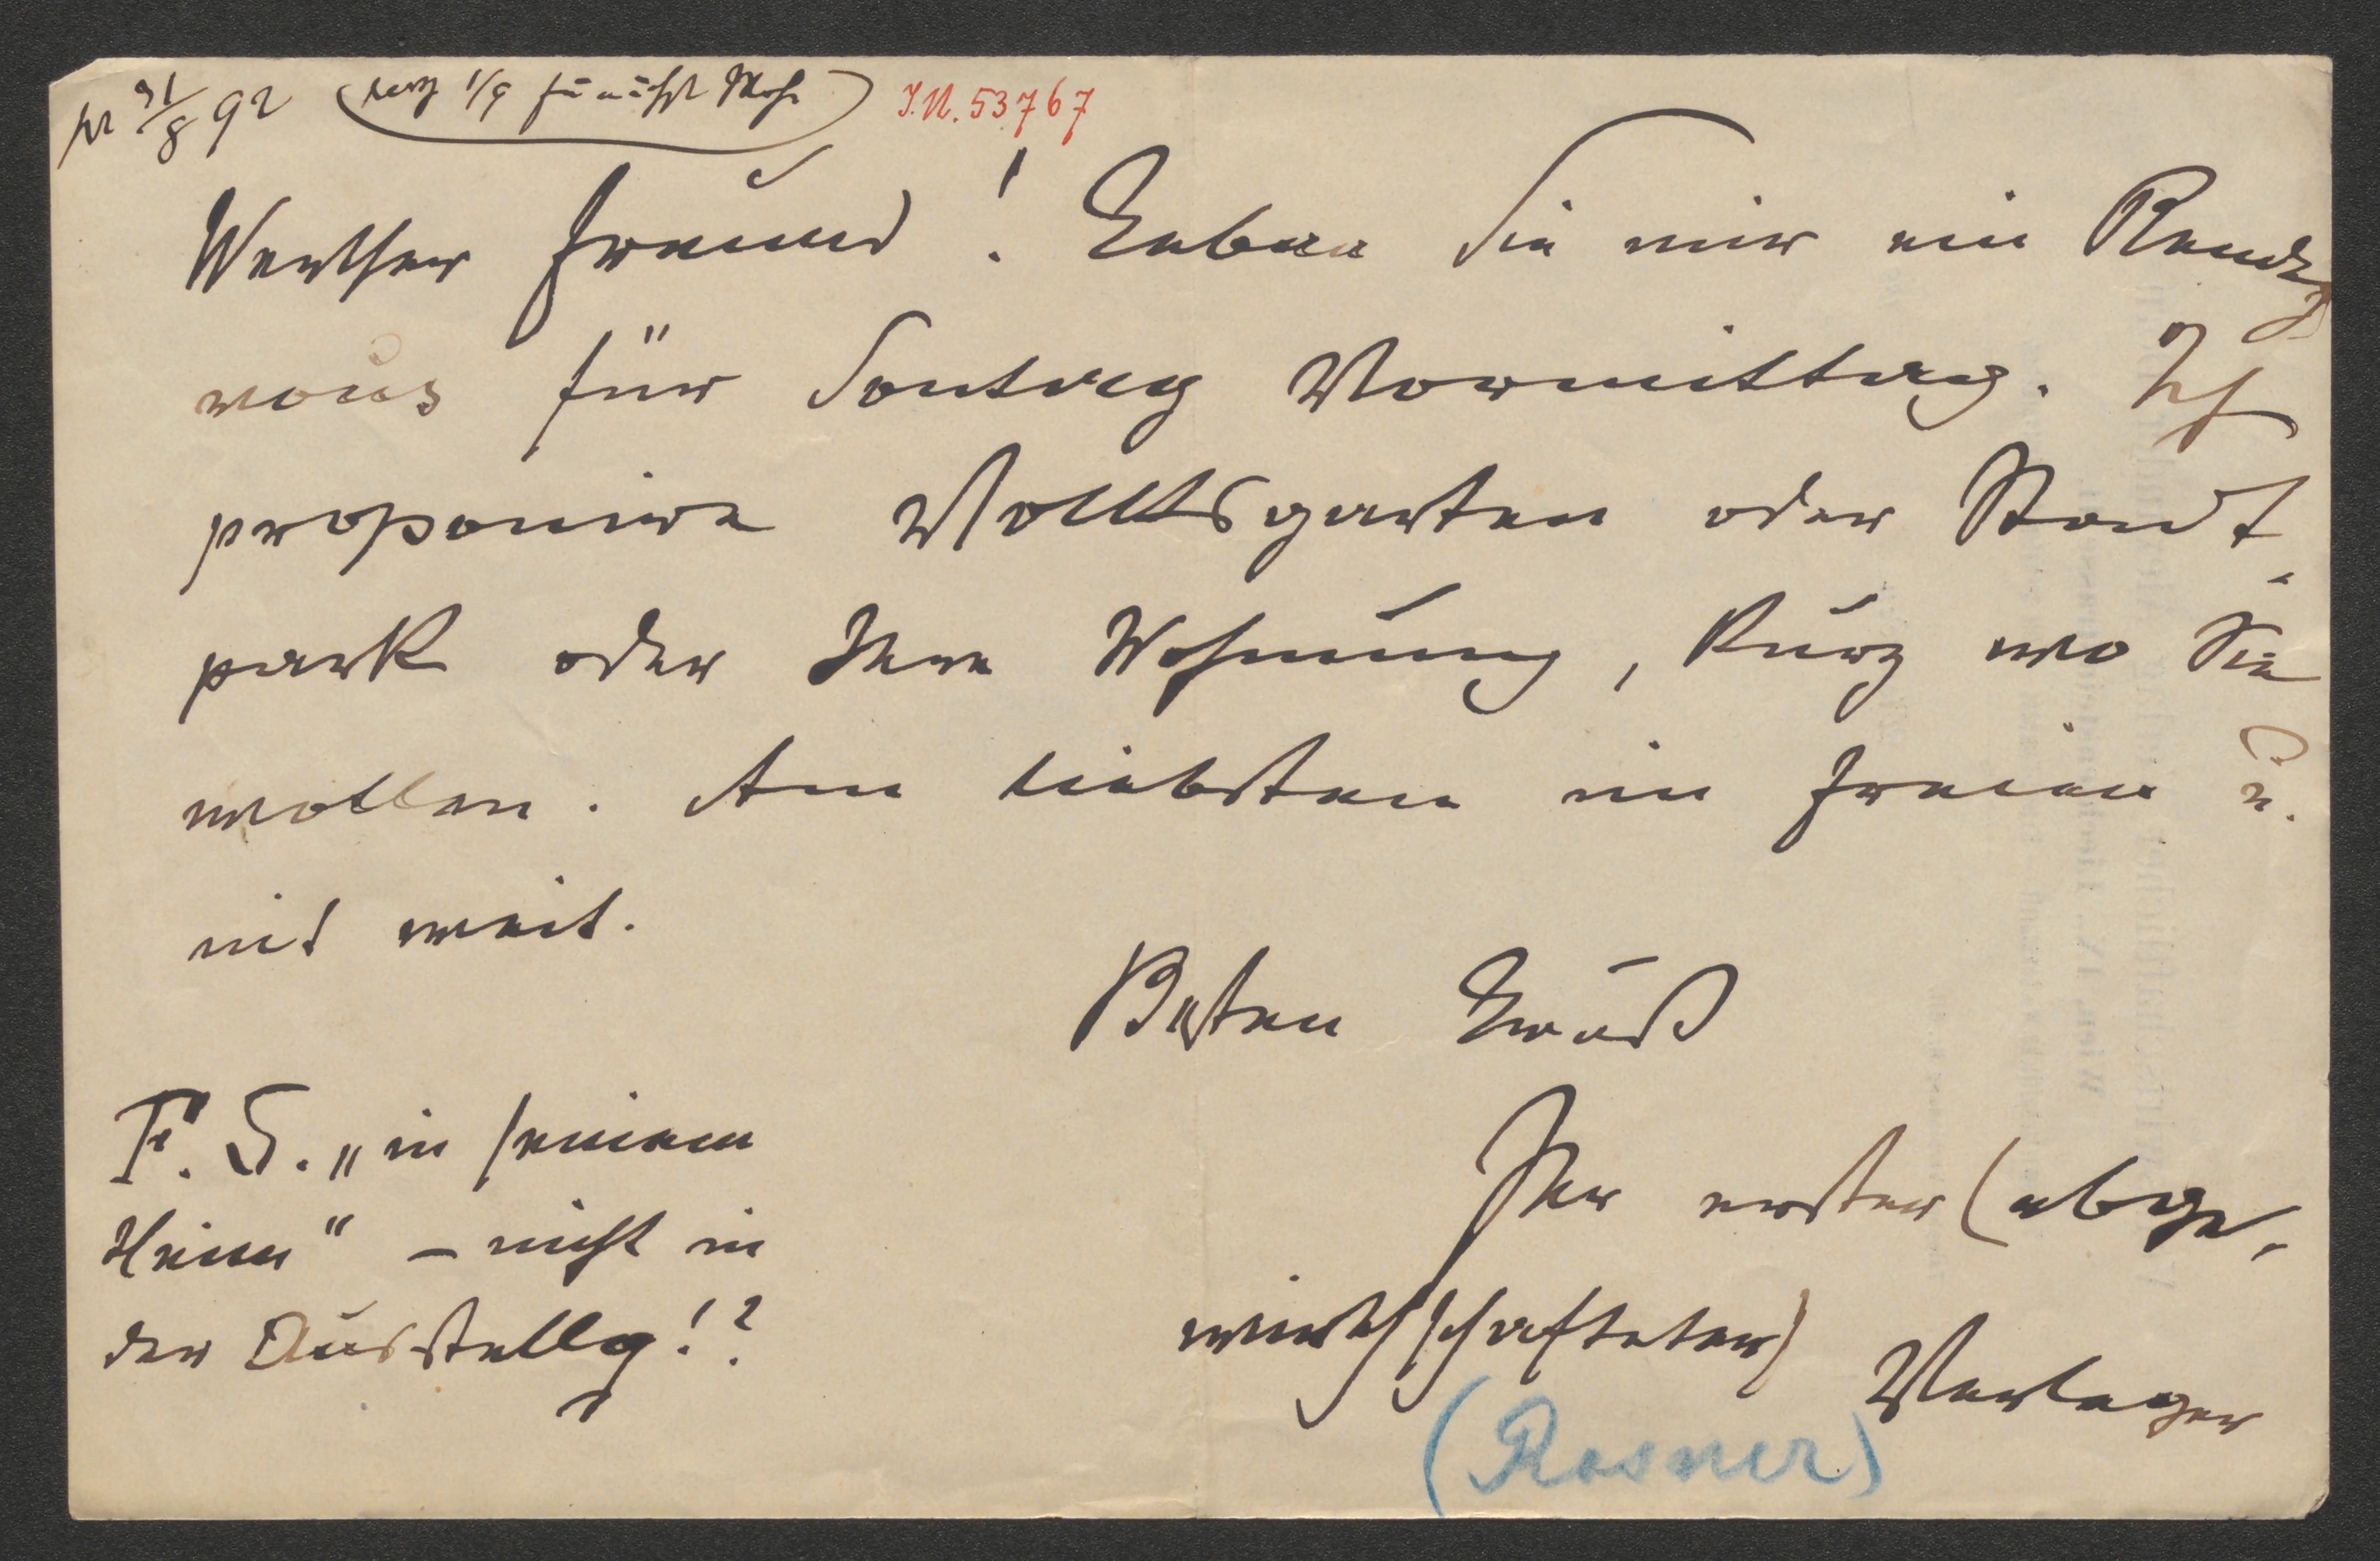 pr 31/8 92 (1/9 für nächst Woche) I.N. 53767
Werther Freund! Geben Sie mir ein Rendez
vous für Sontag Vormittag. Ich
proponire Volksgarten oder Stadt-
park oder Ihre Wohnung, kurz wo Sie
wollen. Am liebsten im Freien u.
nit weit.
Besten Gruß
F. S. „in seinem
Ihr erster (abge-
Heim“ – nicht in
wirthschafteter)
der Ausstellg!?
Verleger
(Rosner)